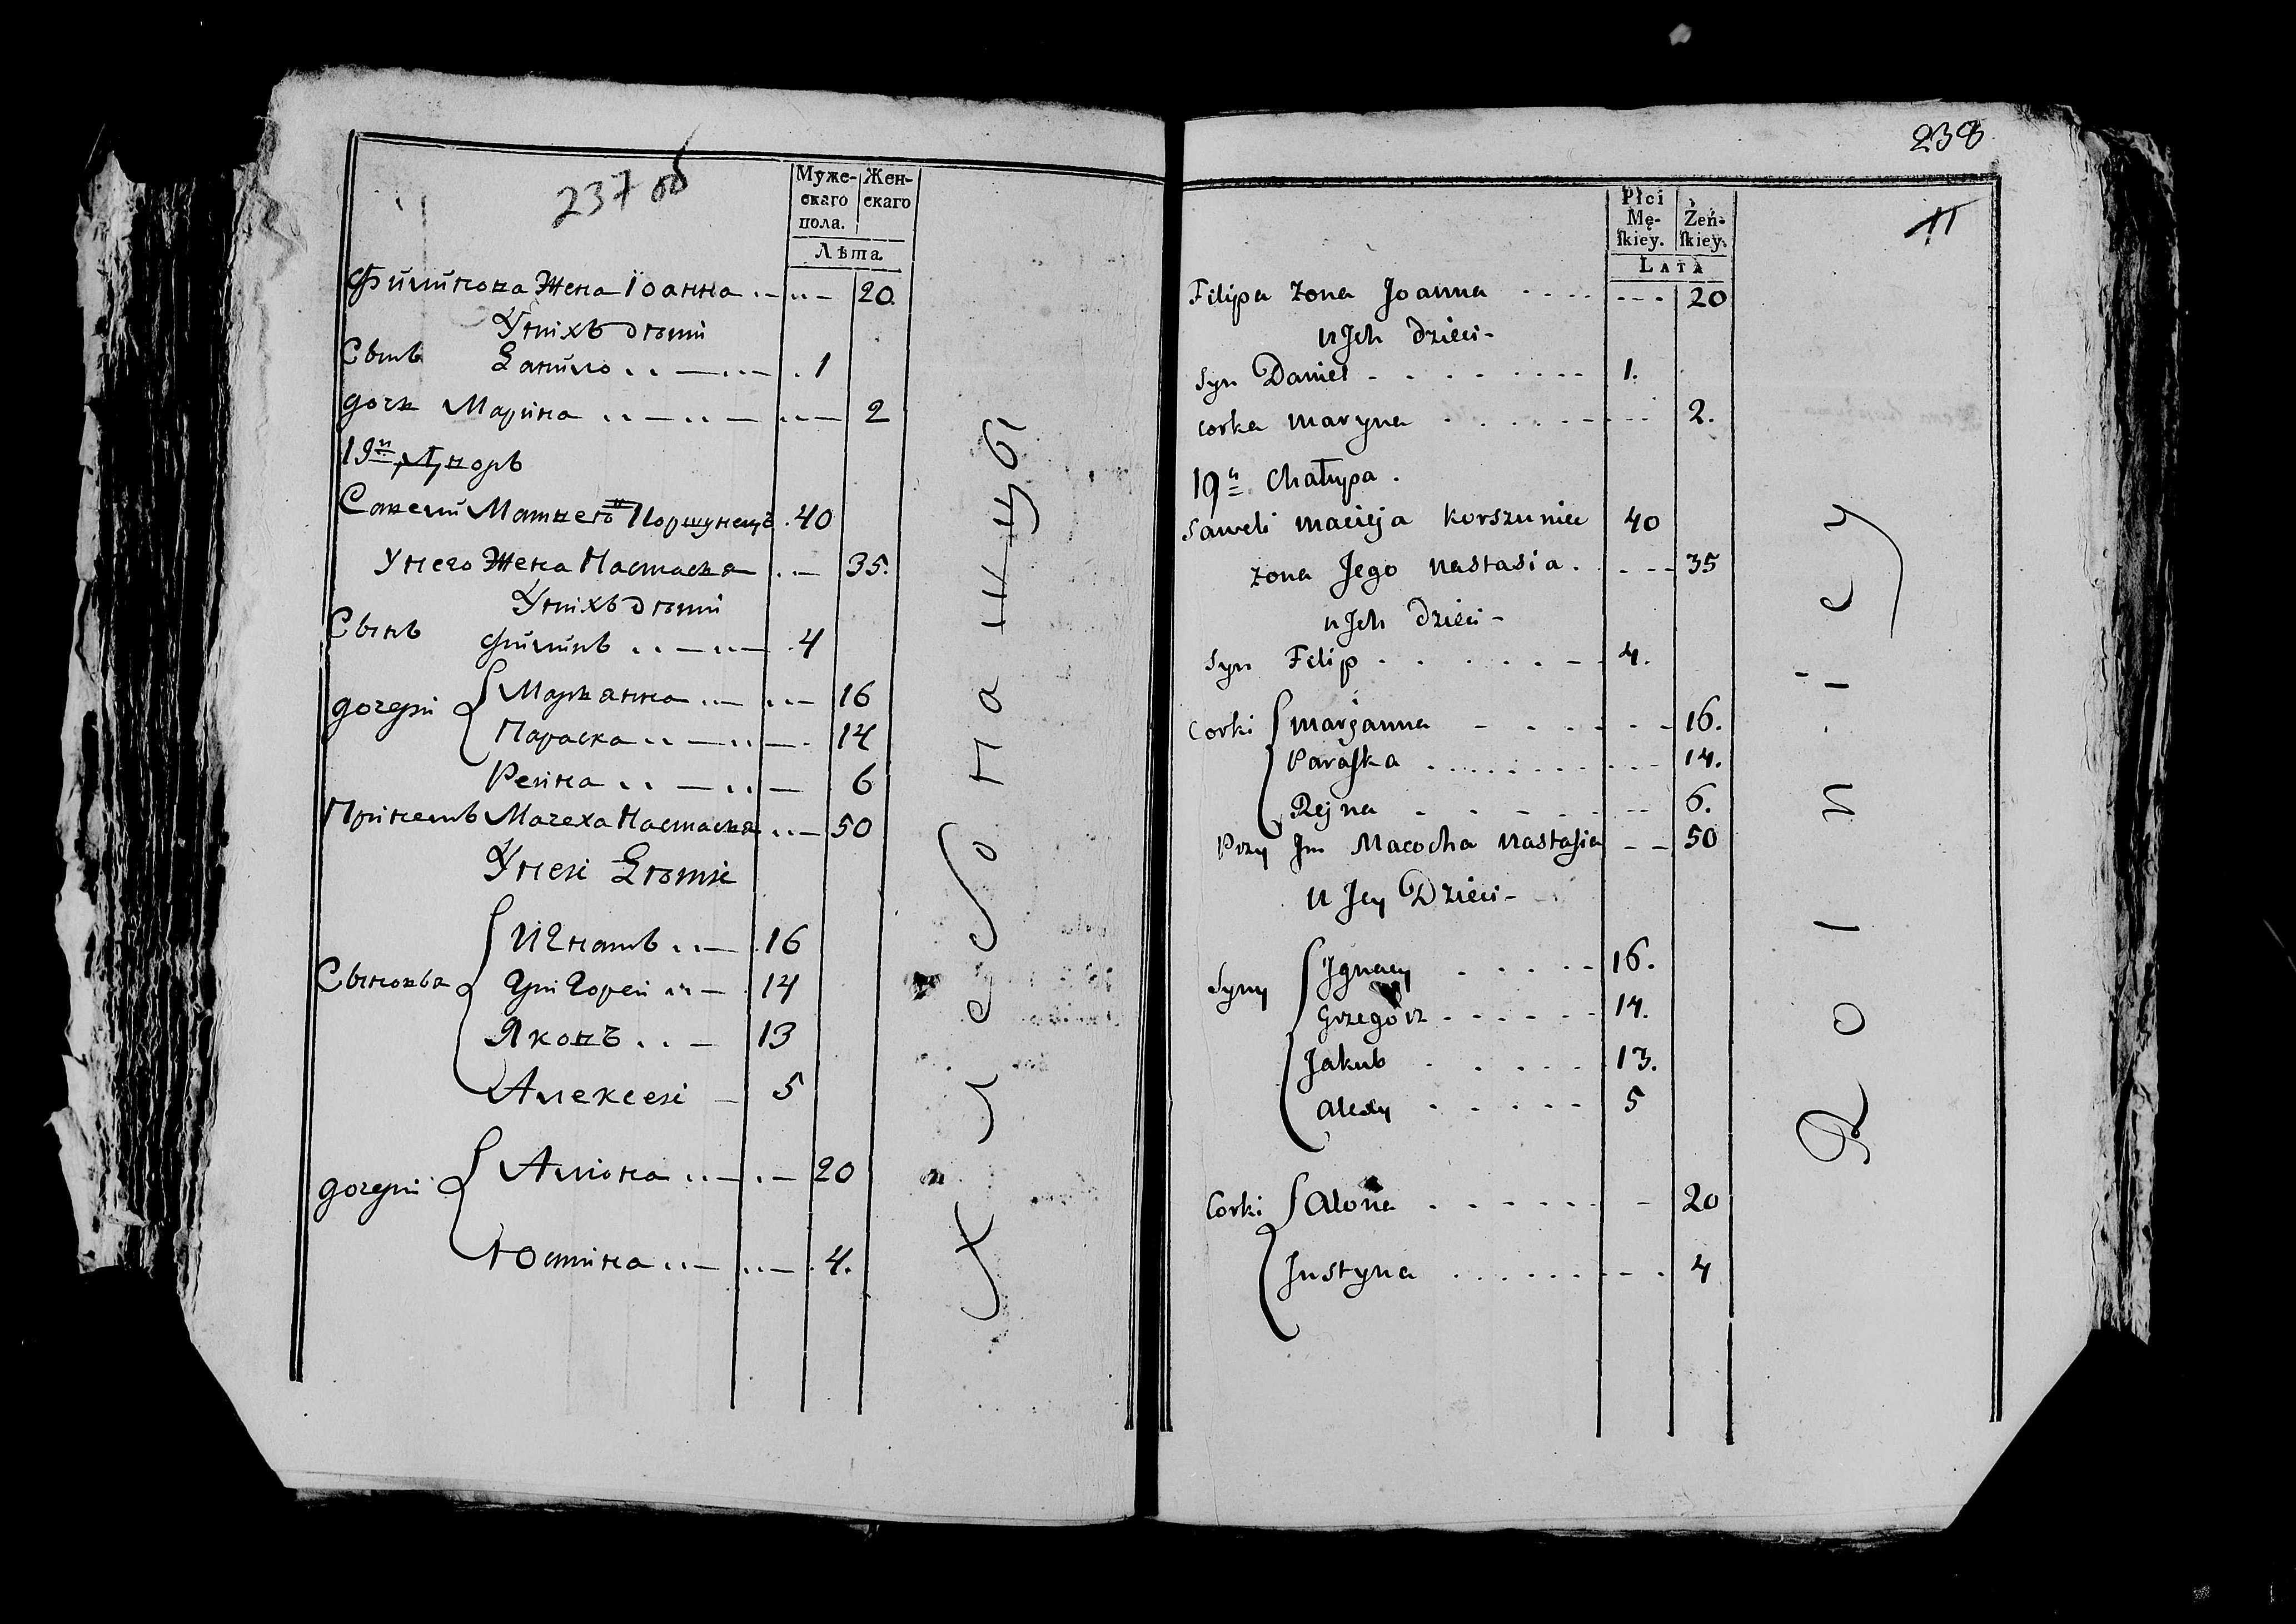 237 об
Муже-
скаго
пола.
Жен-
скаго
Лѣта
Филипова Жена Іоанна 20
У нихъ дѣти
Сынъ Данило 1
дочь Марина 2
19й Дворъ
Савели Матвеевъ Коршунецъ 40
У него Жена Настасья 35.
У нихъ дѣти
Сынъ Филипъ 4
дочери Марьянна 16
Параска 14
Реина 6
При немъ Мачеха Настасья 50
У неи Дѣти
Сыновья Игнатъ 16
Григореи 14
Яковъ 13
Алексеи 5
дочери Алиона 20
Юстина 4.
Хлебопашцы
238
11
Płci
Mę-
ſkiey.
Żeń-
ſkiey.
LATA
Filipa zona Joanna 20
u Jch dzieci
Syn Daniel 1.
corka Maryna 2.
19a Chałupa.
Saweli Macieja Korszuniec 40
zona Jego Nastasia 35
u Jch dzieci
Syn Filip 4.
Corki Marjanna 16.
Paraſka 14.
Rejna 6.
Przy Jm Macocha Nastaſia 50
u Jey Dzieci
Syny Jgnacy 16.
Grzegorz 14.
Jakub 13.
Alexy 5
Corki Alona 20
Justyna 4
Rolnicy